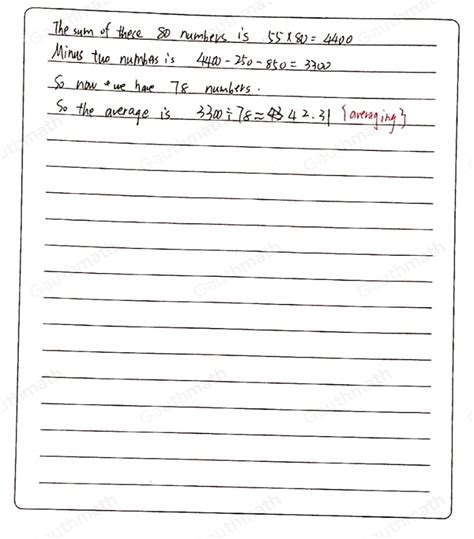 The sum of these 80 numbers is 55 x 80 = 4400
Minus two numbers is 4400 - 250 - 850 = 3300
So now we have 78 numbers.
So the average is 3300 ÷ 78 ≈ 42.31 {averaging}
Gauthmath
Gauthmath
Gauthmath
Gauthmath
Gauthmath
Gauthmath